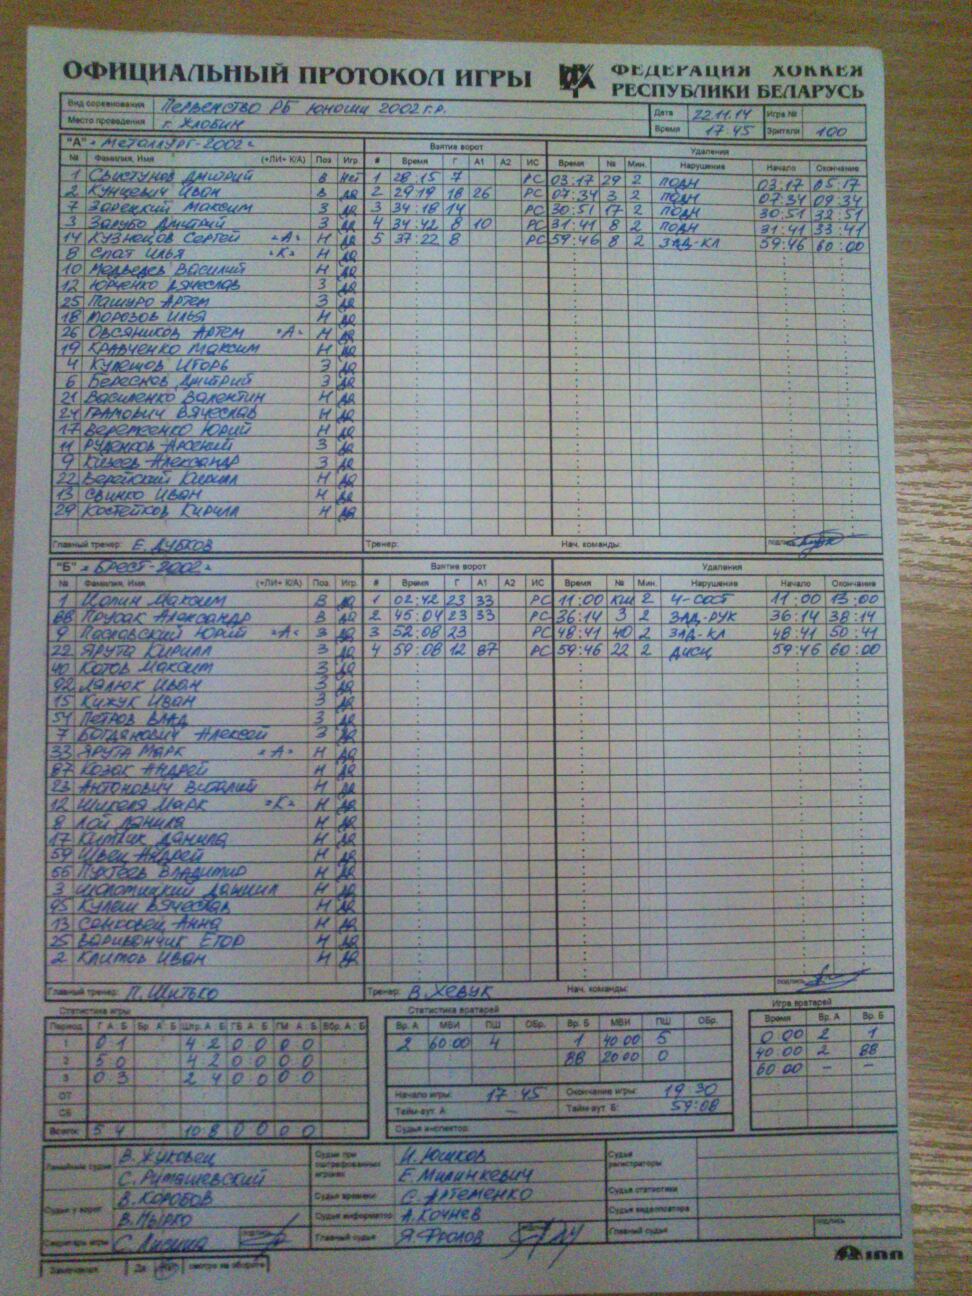 ОФИЦИАЛЬНЫЙ ПРОТОКОЛ ИГРЫ ФЕДЕРАЦИЯ ХОККЕЯ
РЕСПУБЛИКИ БЕЛАРУСЬ
Вид соревнования Первенство РБ юноши 2002 г.р. Дата 22.11.14 Игра №
Место проведения г. Жлобин Время 17:45 Зрители 100
"А" «Металлург-2002» Взятие ворот Удаления
№ Фамилия, Имя («ЛИ» К/А) Поз Игр. # Время Г А1 А2 ИС Время № Мин. Нарушение Начало Окончание
1 Свистунов Дмитрий В Нет 1 28:15 7 РС 03:17 29 2 ПОДН 03:17 05:17
2 Кунцевич Иван В да 2 29:19 18 26 РС 07:34 3 2 ПОДН 07:34 09:34
7 Зарецкий Максим З да 3 34:18 14 РС 30:51 17 2 ПОДН 30:51 32:51
3 Зарубо Дмитрий З да 4 34:42 8 10 РС 31:41 8 2 ПОДН 31:41 33:41
14 Кузнецов Сергей «А» Н да 5 37:22 8 РС 59:46 8 2 ЗАД-КЛ 59:46 60:00
8 Спат Илья «К» Н да
10 Медведев Василий Н да
12 Юрченко Вячеслав З да
25 Пашуро Артем З да
18 Морозов Илья Н да
26 Овсяников Артем «А» Н да
19 Кравченко Максим Н да
4 Кулешов Игорь З да
6 Береснов Дмитрий З да
21 Василенко Валентин Н да
24 Грамович Вячеслав Н да
17 Веремеенко Юрий Н да
11 Руденков Арсений З да
9 Кизеев Александр З да
22 Верейский Кирилл Н да
13 Свинко Иван Н да
29 Костейков Кирилл Н да
Главный тренер: Е. Дубков Тренер: Нач. команды: подпись
"Б" «Брест-2002» Взятие ворот Удаления
№ Фамилия, Имя («ЛИ» К/А) Поз. Игр. # Время Г А1 А2 ИС Время № Мин. Нарушение Начало Окончание
1 Цолин Максим В да 1 02:42 23 33 РС 11:00 КШ 2 Ч-СОСТ 11:00 13:00
88 Прудак Александр В да 2 45:04 23 33 РС 36:14 3 2 ЗАД-РУК 36:14 38:14
9 Павловский Юрий «А» З да 3 52:08 23 РС 48:41 40 2 ЗАД-КЛ 48:41 50:41
22 Ярута Кирилл З да 4 59:08 12 87 РС 59:46 22 2 ДИСЦ 59:46 60:00
40 Котов Максим З да
92 Далюк Иван З да
15 Кижук Иван З да
51 Петров Влад З да
7 Богданович Алексей З да
33 Ярута Марк «А» Н да
87 Козак Андрей Н да
23 Антонович Виталий Н да
12 Шикеля Марк «К» Н да
8 Лой Данила Н да
17 Данила Н да
59 Швец Андрей Н да
66 Пухтеев Владимир Н да
3 Даниил Н да
95 Кулеш Вячеслав Н да
13 Сенковец Анна Н да
25 Варивончик Егор Н да
2 Климов Иван Н да
Главный тренер: П. Шитько Тренер: В. Хевук Нач. команды: подпись
Статистика игры Статистика вратарей Игра вратарей
Период Г А Б Бр. А Б Штр. А Б ГБ А Б ГМ А Б Вбр. А Б Вр. А МВИ ПШ ОБр. Вр. Б МВИ ПШ ОБр. Время Вр. А Вр. Б
1 0 1 4 2 0 0 0 0 2 60:00 4 1 40:00 5 0:00 2 1
2 5 0 4 2 0 0 0 0 88 20:00 0 40:00 2 88
3 0 3 2 4 0 0 0 0 60:00 – –
ОТ Начало игры: 17:45 Окончание игры: 19:30
СБ Тайм-аут. А: – Тайм-аут. Б: 59:08
Всего: 5 4 10 8 0 0 0 0 Судья инспектор:
Линейные судьи В. Жуковец Судьи при оштрафованных игроках И. Юшков Судьи регистраторы
С. Риташевский Е. Милинкевич
Судьи у ворот В. Коробов Судья времени С. Артеменко Судья статистики
В. Мырко Судья информатор А. Кочнев Судья видеоповтора
Секретарь игры С. подпись Главный судья Я. Фролов подпись Главный судья подпись
Замечания Да Нет смотри на обороте